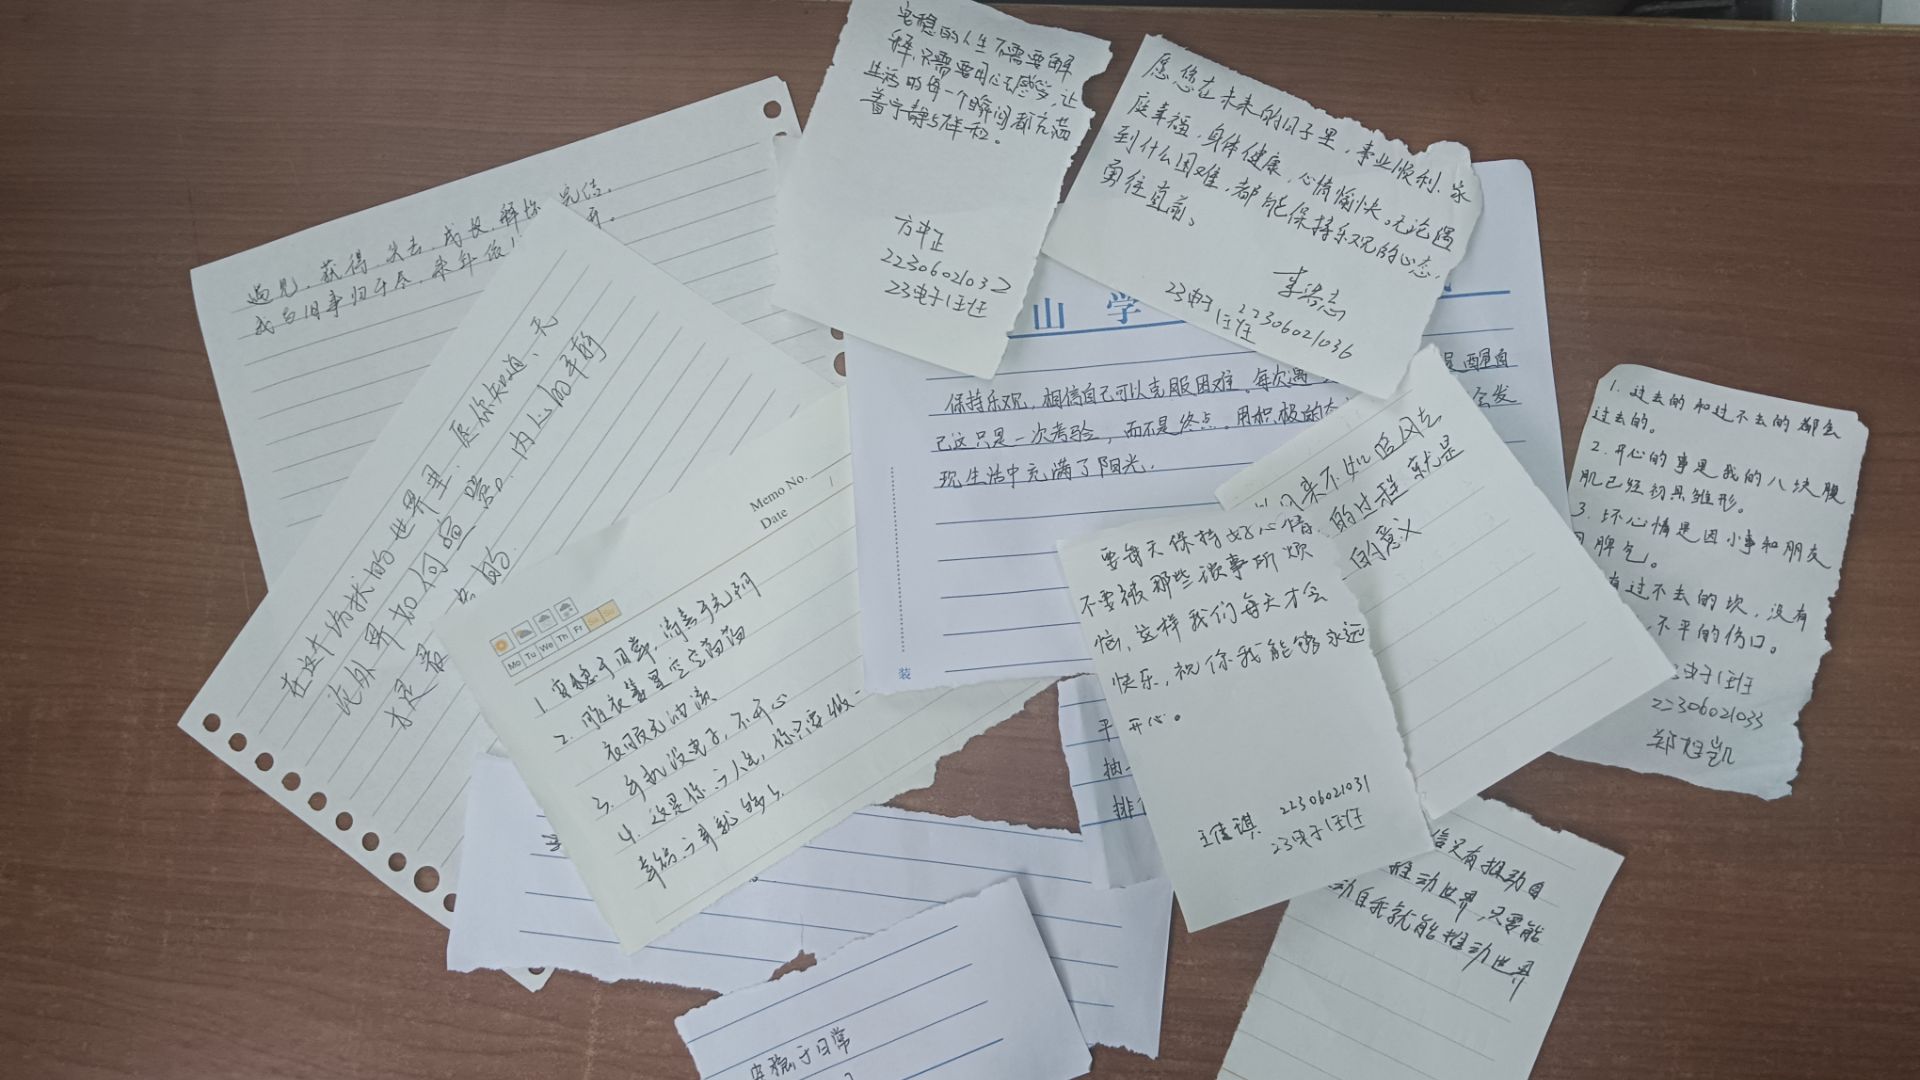 遇见，获得，失去，成长，释怀，完结，
我与旧事归于尽，来年依
开。
在这个纷扰的世界里，愿你知道，无
论外界如何喧嚣，内心的平静
才是最
的
安稳的人生不需要解
释，只需要用心去感受，让
生活的每一个瞬间都充满
着宁静与祥和。
方中正
22306021032
23电子1班
愿您在未来的日子里，事业顺利，家
庭幸福，身体健康，心情愉快。无论遇
到什么困难，都能保持乐观的心态，
勇往直前。
李洪志
22306021036
23电子1班
山 学
保持乐观，相信自己可以克服困难。每次遇
醒自
己这只是一次考验，而不是终点。用积极的
会发
现生活中充满了阳光。
装
来不如追风去
的过程就是
的意义
1. 过去的和过不去的都会
过去的。
2. 开心的事是我的八块腹
肌已经初具雏形。
3. 坏心情是因小事和朋友
脾气。
有过不去的坎，没有
不平的伤口。
电子1班
22306021033
郑旭凯
Memo No.
Date
Mo Tu We Th Fr Sa Su
1. 安稳于日常，清喜于无润
2. 脏衣篓里空空荡荡
衣服无油渍
3. 手机没电了，不开心
4. 这是你的人生，你只需做
幸福的事就够了
要每天保持好心情，
不要被那些琐事所烦
恼，这样我们每天才会
快乐，祝你我能够永远
开心。
王佳琪 22306021031
23电子1班
平
抽
排
信又有推动自
推动世界，只要能
动自我就能推动世界
安稳于日常